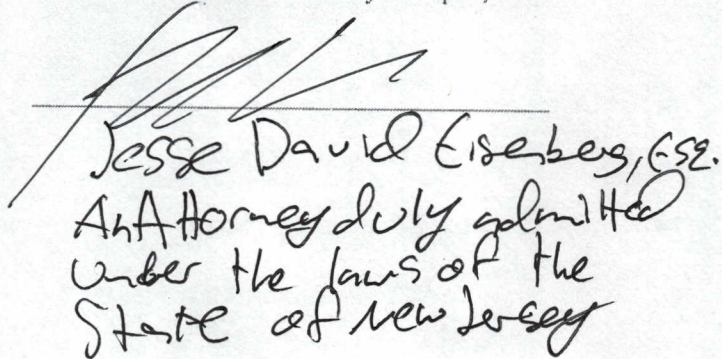 Jesse David Eisenberg, Esq.
An Attorney duly admitted
under the laws of the
State of New Jersey